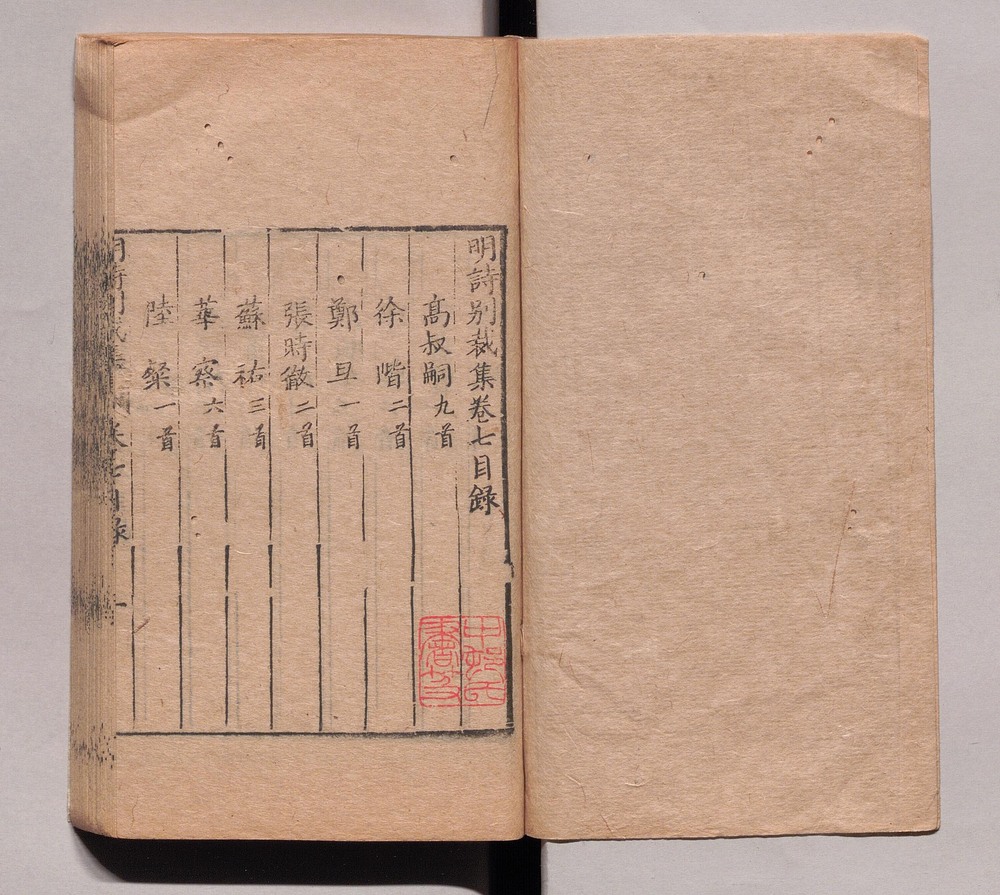 明詩別裁集卷七目錄
高叔嗣九首
徐階二首
鄭旦一首
張時徹二首
蘇祐三首
華察六首
陸粲一首
明詩別裁集
中邨氏